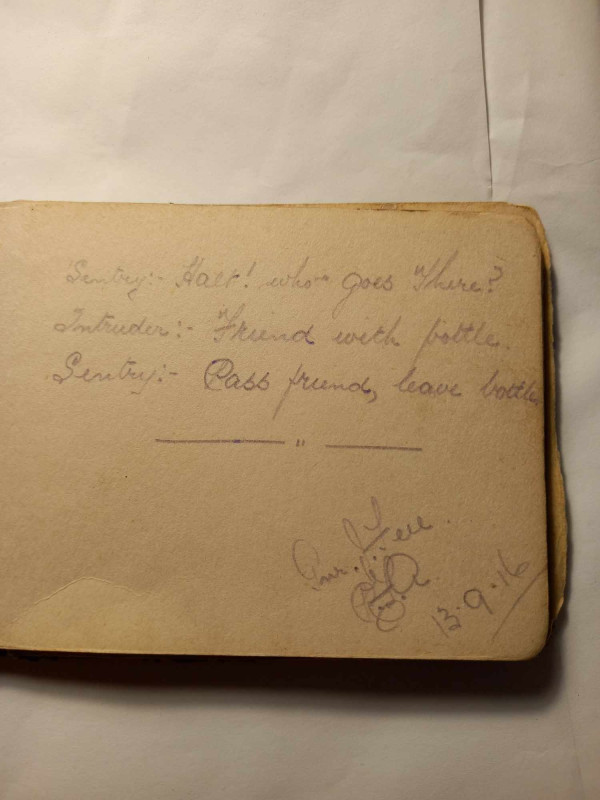 Sentry:- Halt! who goes There?
Intruder:- Friend with bottle.
Sentry:- Pass friend, leave bottle.
"
Gnr.
13.9.16